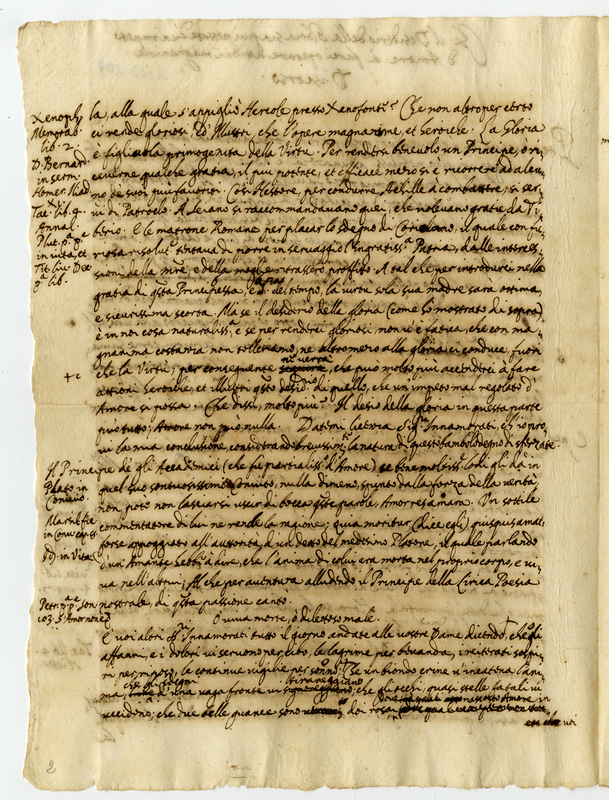 Xenoph
Memorab.
lib. 2.
D. Bernard.
in serm.
Homer. Iliad.
Tac. lib. 4.
Annal.
Plut. p. p.e
in uita, et
Tit. Liu. Dec.
p.a lib.
la, alla quale s'appigliò Hercole presso Xenofonte. Che non altro per certo
ci rende gloriosi, ed Illustri, che l'opere magnanime, et heroiche. La Gloria
è figliuola primogenita della Virtù. Per rendersi beneuolo un Principe, o ri-
ceuerne qualche gratia, il più potente, et efficace mezo si è ricorrere ad alcu-
no de' suoi più fauoriti. Così Nestore, per condurre Achille a combattere, si ser-
uì di Patroclo. A Seiano si raccommandauano quei, che uoleuano gratie da Ti-
berio. E le matrone Romane per placar lo sdegno di Coriolano, il quale con fu-
riosa risolut.e tentaua di porre in seruaggio l'ingratiss.a Patria, dalle interces-
sioni della madre, e della moglie ritrassero profitto. A tal che per introdursi nella
gratia di q.sta Principessa, del tempo, la uirtù sola sua madre sarà ottima,
e sicurissima scorta. Ma se il desiderio della gloria (come hò mostrato di sopra)
è in noi cosa naturaliss.a, e se per renderci gloriosi non ui è fatica, che con ma-
gnanima costanza non tolleriamo, ne altro mezo alla gloria ci conduce, fuori
che la Virtù; per conseguente può molto più accenderci à fare
attioni heroiche, et illustri q.sto desid.o di quello, che un impeto mal regolato d'
Amore si possa. Che dissi, molto più? Il desio della gloria in questa parte
può tutto; Amore non può nulla. Datemi licenza S.ri Innamorati, ch'io pro-
ui la mia conclusione, considerando breuissim.te la natura di questo
Il Principe de gli Accademici (che fu partialiss.o d'Amore) gli dà in
Plato in
Conuiuio.
quel suo sontuosissimo Conuito, nulla di meno, spinto dalla forza della uerità,
non potè non lasciarsi uscir di bocca q.ste parole, Amor res amara. Un sottile
Marsil. Fic.
in Conu. cap. 8.
commentatore di lui ne rende la ragione; quia moritur (dice egli) quisquis amat:
forse appoggiato all'autorità, d'un detto del medesimo Platone, il quale parlando
d'un Amante hebbe à dire, che l'anima di colui era morta nel proprio corpo, e ui-
ua nell'altrui; Al che per auentura alludendo il Principe della Lirica Poesia
nostrale, di q.sta passione cantò.
Petr. p. p.e son.
103. S'Amor non è
O uiua morte, ò dilettoso male.
E uoi altri S.ri Innamorati tutto il giorno andate alle uostre Dame dicendo, che gli
affanni, e i dolori ui seruono per cibo, le lagrime per beuanda, i reiterati sospi-
ri per riposo, le continue uigilie per sonno. Che un biondo crine u'incatena l'ani-
ma, che gli sdegni d'una uaga fronte ui tiraneggiano, che gli occhi, quasi stelle fatali ui
uccidono, che due belle guancie sono di rosa, Amore in
2